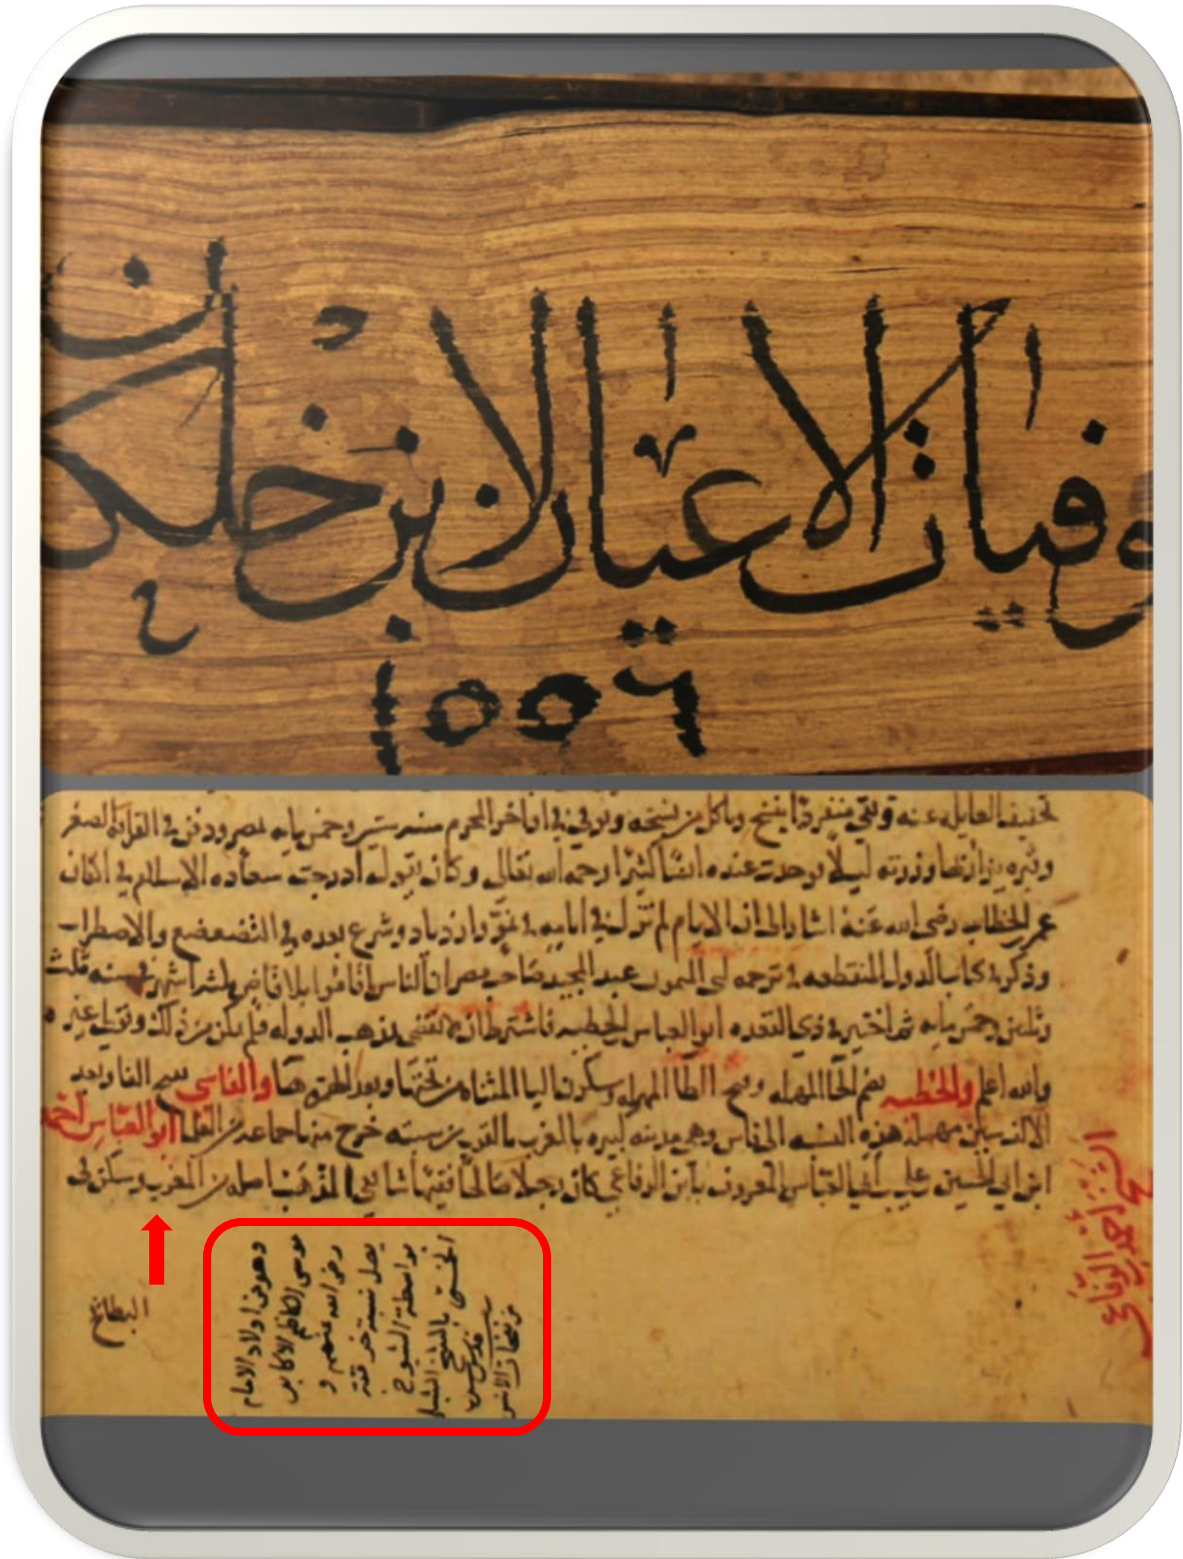 وفيات الاعيان لابن خلكان
١٥٥٦
وبقي منفردا ينسخ وياكل من نسخه وتوفي في اواخر المحرم سنة ستين وخمس مايه بمصر ودفن في القرافة الصغرى
وقبره يزار بها وزرته ليلا فوجدت عنده انسا كثيرا رحمه الله تعالى وكان يقول ادرجت سعاده الاسلام في اكفان
عمر بن الخطاب رضي الله عنه اشار الى ان الاسلام لم تزل في ايامه في نمو وازدياد وشرع بعده في التضعضع والاضطراب
وذكر في كتاب الدول المنقطعه في ترجمه ابي الميمون عبد المجيد صاحب مصر ان الناس اقاموا بلا قاض ثلثة اشهر في سنه ثلث
وثلثين وخمس مايه ثم اختير في ذي القعده ابو العباس بن الحطيه فاشترط ان لا يقضي بمذهب الدوله فلم يمكن من ذلك وتولى غيره
والله اعلم والحطيه بضم الحا المهمله وفتح الطا المهمله وسكون اليا المثناه من تحتها وبعد الهمزه ها والفاسي بفتح الفا وبعد
الالف سين مهمله هذه النسبه الى فاس وهي مدينه كبيره بالمغرب بالقرب من سبته خرج منها جماعه من العلما ابو العباس احمد
ابن ابي الحسين علي بن ابي العباس المعروف بابن الرفاعي كان رجلا صالحا فقيها شافعي المذهب اصله من المغرب وسكن في
الشيخ أحمد الرفاعي
البطايح
وهو من اولاد الامام
موسى الكاظم الاكابر
رضي الله عنهم و
يصل نسبة خرقته
بواسطة الشيوخ
الخمستى بالشيخ الشبلي
قدس سره
من نفحات الانس